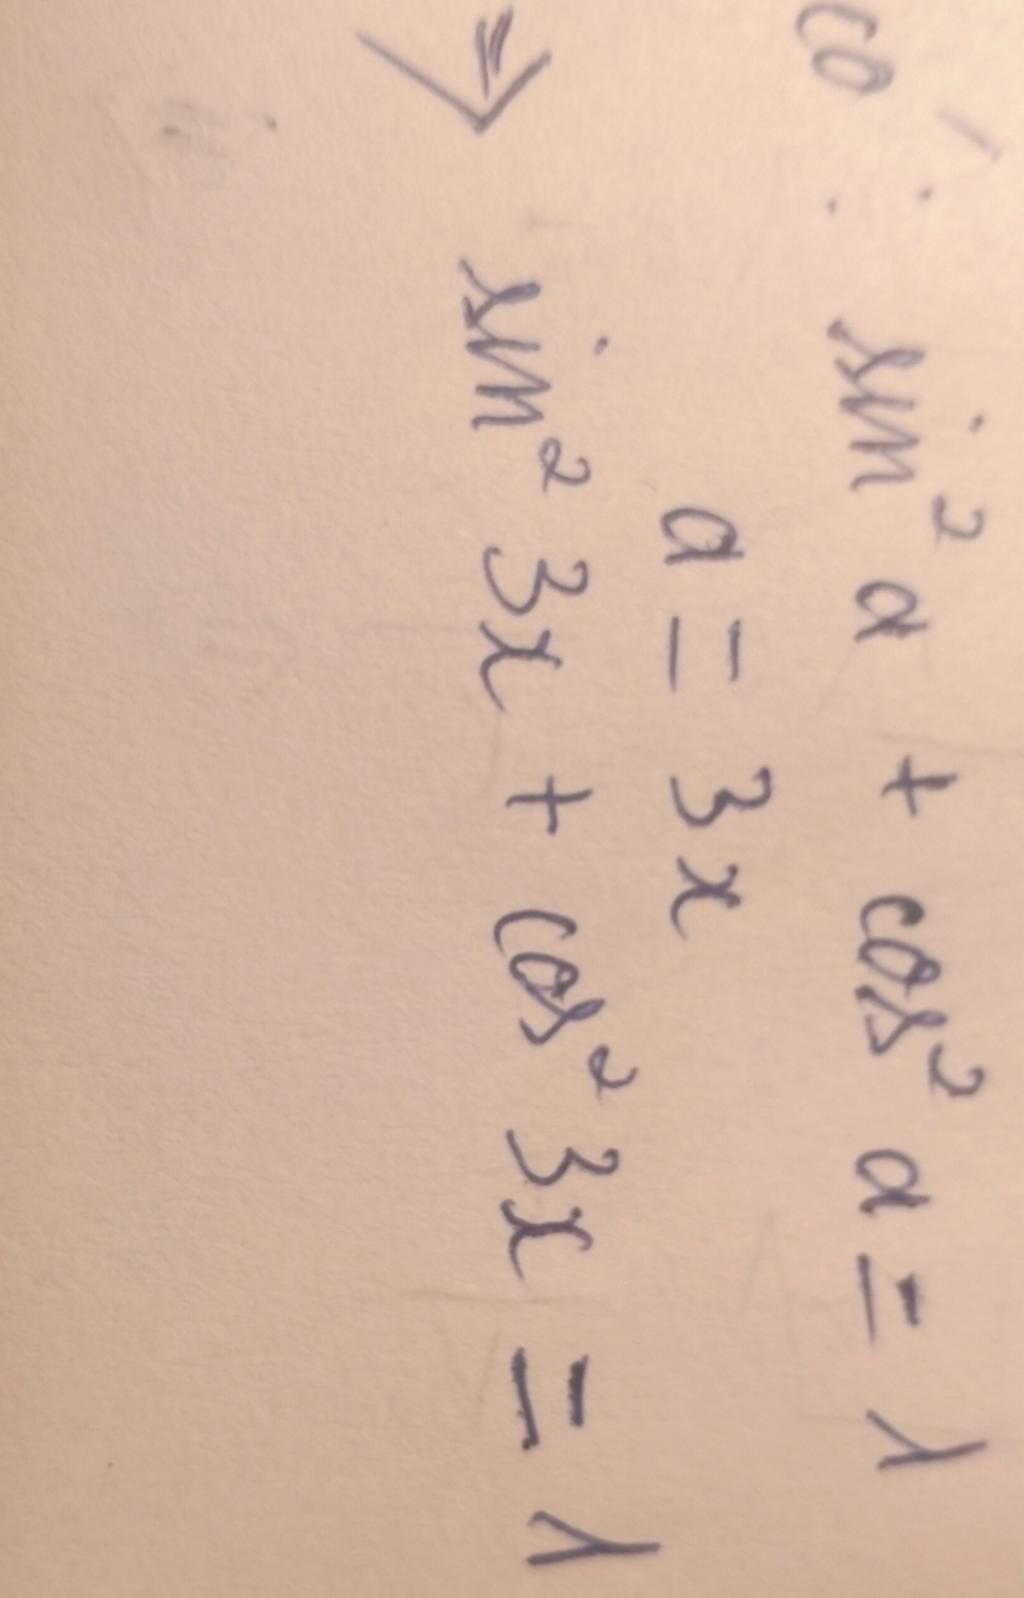 có: sin² a + cos² a = 1
a = 3x
⇒ sin² 3x + cos² 3x = 1